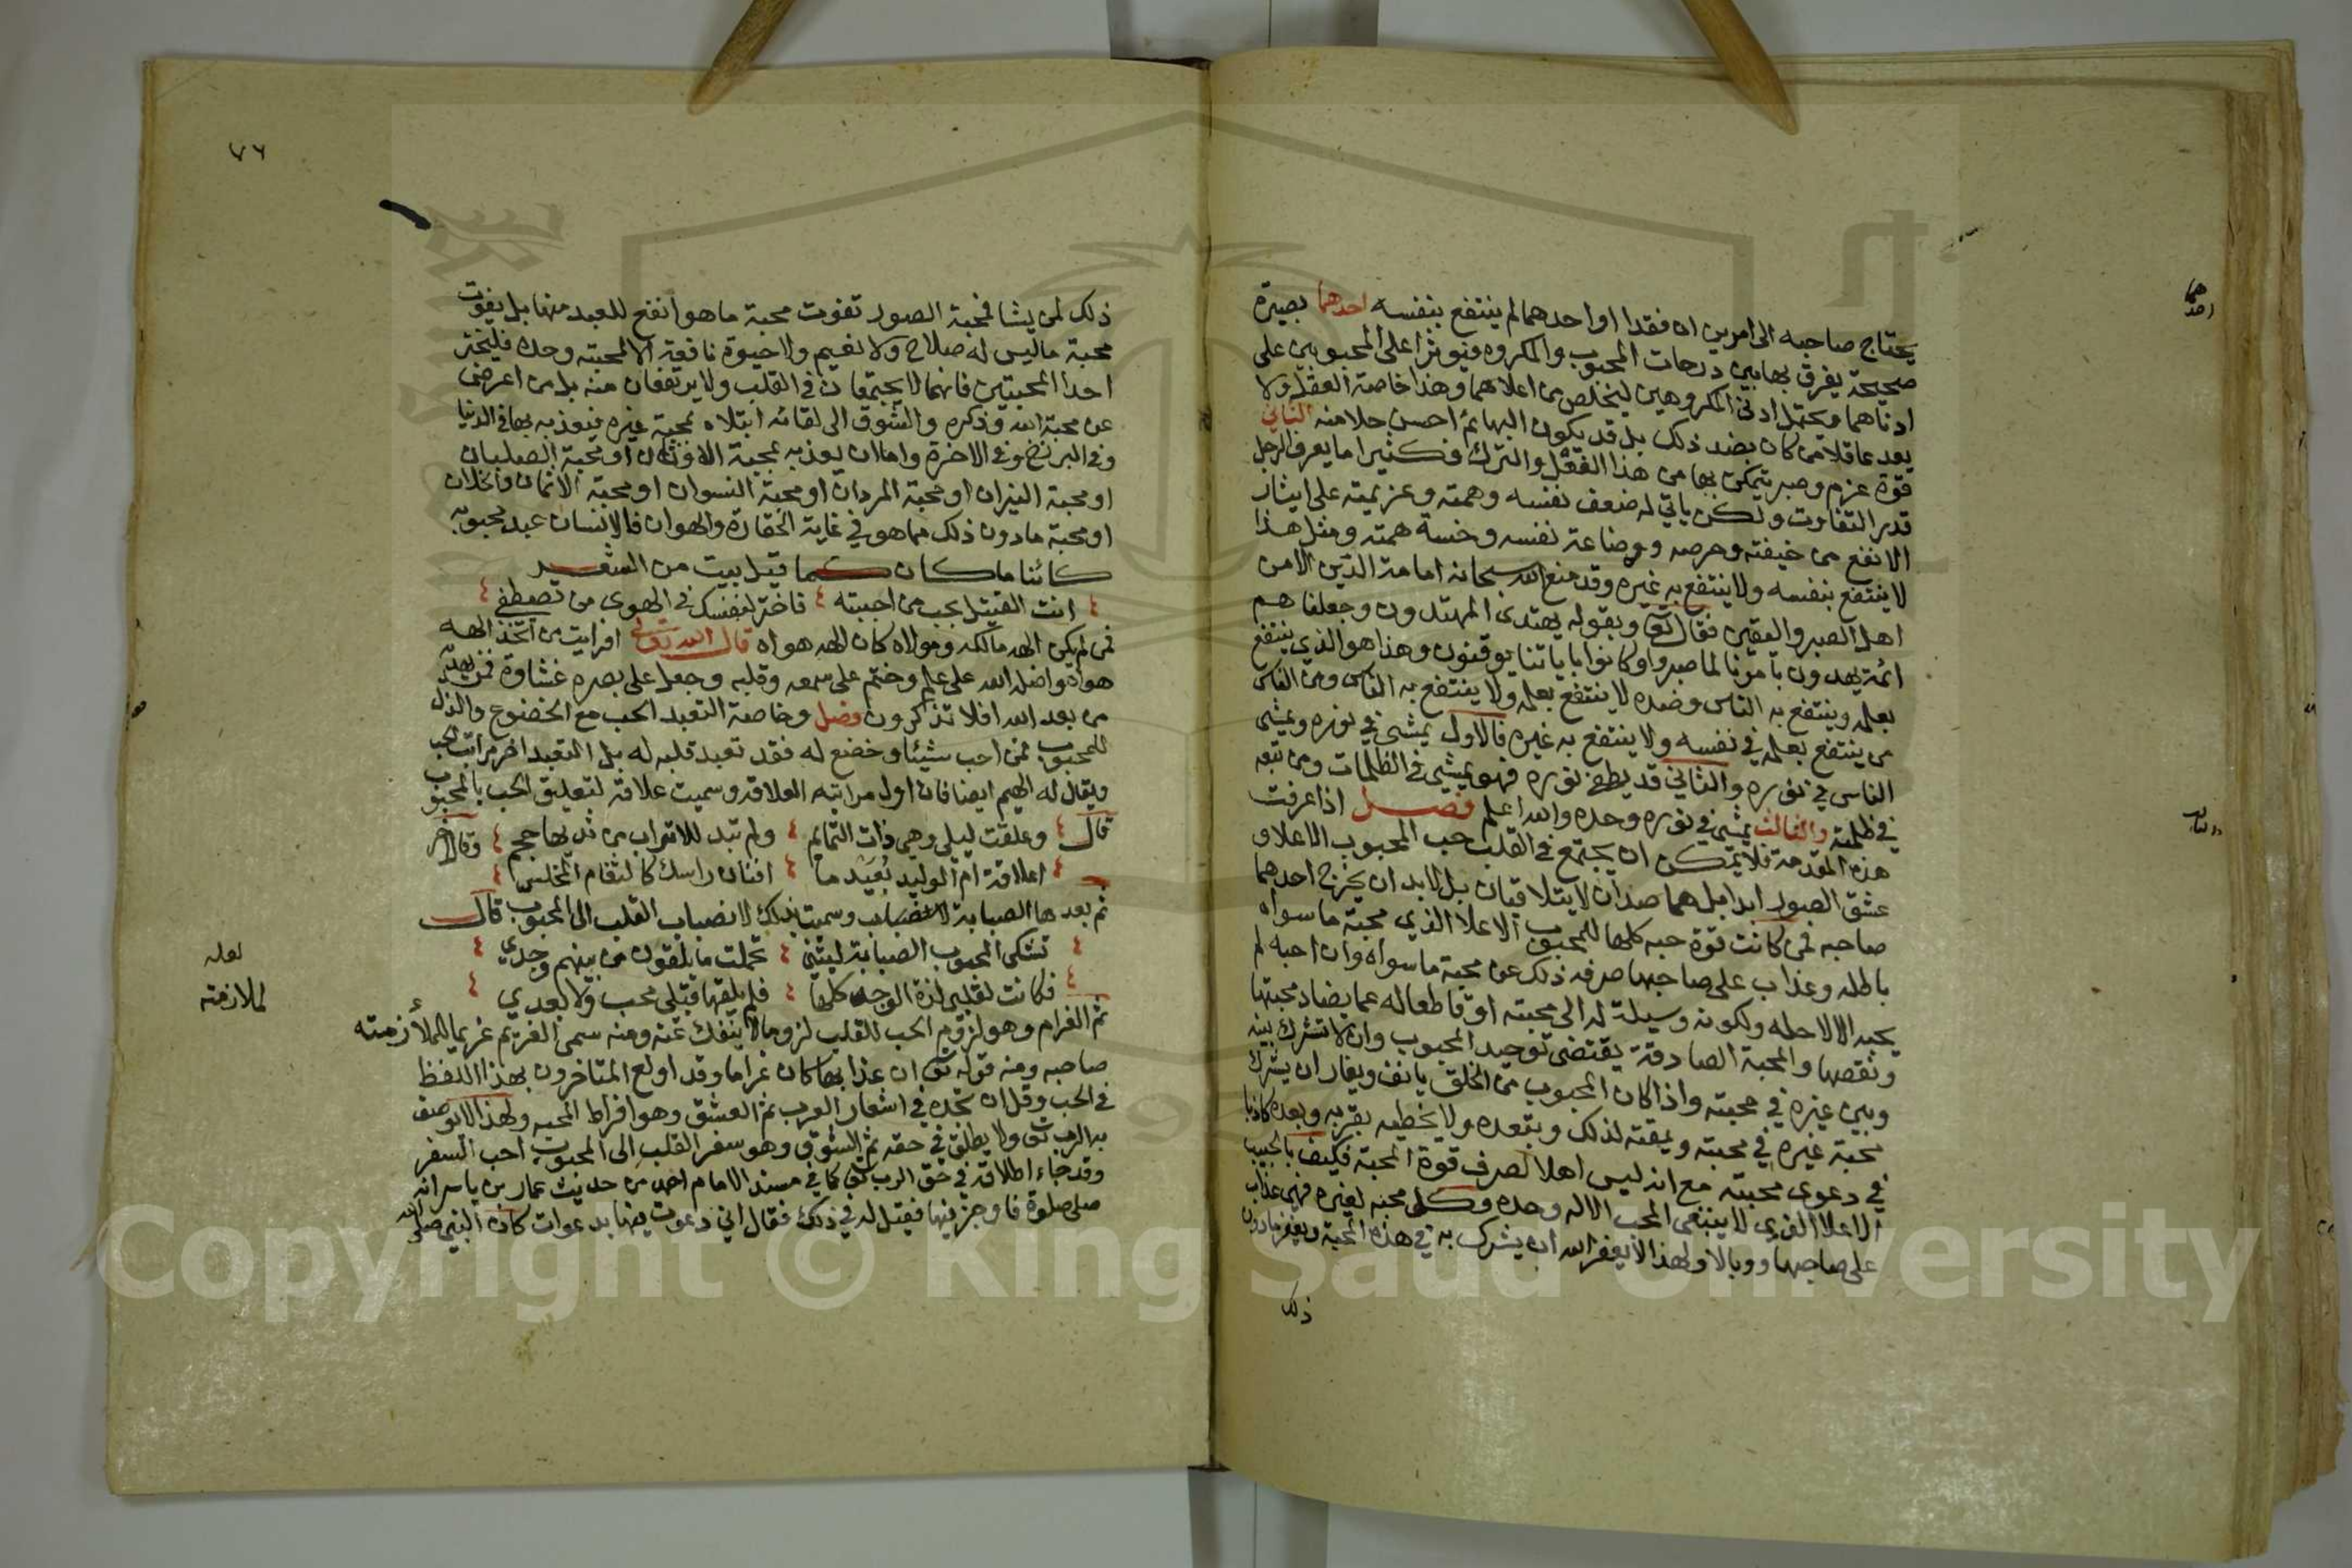 يحتاج صاحبه الى امرين ان فقدا او احدهما لم ينتفع بنفسه احدهما بصيرة
صحيحة يفرق بها بين درجات المحبوب والمكروه فيوثر اعلى المحبوبين على
ادناهما ويحتمل ادنى المكروهين ليخلص من اعلاهما وهذا خاصة العقل ولا
يعد عاقلا من كان بضد ذلك بل قد يكون البهائم احسن حلا منه الثاني
قوة عزم وصبر يتمكن بها من هذا الفعل والترك فكثيرا ما يعرف الرجل
قدر التفاوت ولكن ياتي له ضعف نفسه وهمته وعزيمته على ايثار
الانفع من خيفته وحرصه ووضاعة نفسه وخسة همته ومثل هذا
لا ينتفع بنفسه ولا ينتفع به غيره وقد منع الله سبحانه امامة الدين الا من
اهل الصبر واليقين فقال تع وبقوله يهتدى المهتدون وجعلناهم
ائمة يهدون بامرنا لما صبروا وكانوا باياتنا يوقنون وهذا هو الذي ينتفع
بعلمه وينتفع به الناس وضده لا ينتفع بعلمه ولا ينتفع به الناس ومن الناس
من ينتفع بعلمه في نفسه ولا ينتفع به غيره فالاول يمشي في نوره ويمشي
الناس في نوره والثاني قد يطفئ نوره فهو يمشي في الظلمات ومن تبعه
في ظلمته والثالث يمشي في نوره وحده والله اعلم فصل اذا عرفت
هذه المقدمة فلا يتمكن ان يجتمع في القلب حب المحبوب الاعلا و
عشق الصور ابدا بل هما ضدان لا يتلاقيان بل لابد ان يخرج احدهما
صاحبه فمن كانت قوة حبه كلها للمحبوب الاعلا الذي محبة ما سواه
باطله وعذاب على صاحبها صرفه ذلك عن محبة ما سواه وان احبه لم
يحبه الا لاجله ولكونه وسيلة له الى محبته او قاطعا له عما يضاد محبتها
ونقصها والمحبة الصادقة يقتضى توحيد المحبوب وان لا تشرك بينه
وبين غيره في محبته واذا كان المحبوب من الخلق يانف ويغار ان يشرك
محبة غيره في محبته ويمقته لذلك ويبعده ولا يحظيه بقربه ويعده كاذبا
في دعوى محبته مع انه ليس اهلا لصرف قوة المحبة فكيف بالحبيب
الاعلا الذي لا ينبغى المحب الا له وحده وكل محبه لغيره فهي عذاب
على صاحبها ووبالا ولهذا لا يغفر الله ان يشرك به في هذه المحبة ويغفر ما دون
ذلك
احدهما
والثالث
٧٦
ذلك لمن يشا فمحبة الصور تفوت محبة ما هو انفع للعبد منها بل يفوت
محبة ما ليس له صلاح ولا نعيم ولا حيوة نافعة الا لمحبته وحده فليختر
احدا المحبتين فانهما لا يجتمعان في القلب ولا يرتفعان منه بل من اعرض
عن محبة الله وذكره والشوق الى لقائه ابتلاه بمحبة غيره فيعذبه بها في الدنيا
وفي البرزخ وفي الاخرة واما ان يعذبه بمحبة الاوثان او محبة الصلبان
او محبة النيران او محبة المردان او محبة النسوان او محبة الاثمان والخلان
او محبة مادون ذلك مما هو في غاية الحقارة والهوان فالانسان عبد محبوبه
كائنا ما كان كما قيل بيت من الشعر
انت القتيل بحب من احببته فاختر لنفسك في الهوى من تصطفي
فمن لم يكن الهه مالكه ومولاه كان الهه هواه قال الله تعالى افرايت من اتخذ الهه
هواه واضله الله على علم وختم على سمعه وقلبه وجعل على بصره غشاوة فمن يهديه
من بعد الله افلا تذكرون فصل وخاصة التعبد الحب مع الخضوع والذل
للمحبوب فمن احب شيئا وخضع له فقد تعبد قلبه له بل التعبد اخر مراتب الحب
ويقال له الهيم ايضا فان اول مراتبه العلاقه وسميت علاقة لتعليق الحب بالمحبوب
قال وعلقت ليلى وهي ذات التمائم ولم تبد للاتراب من ثديها حجم وقال اخر
اعلاقة ام الوليد بعيد ما افنان راسك كالثغام المخلس
ثم بعدها الصبابة وسميت بذلك لانصباب القلب الى المحبوب قال
تشكى المحبوب الصبابة ليتني تحملت ما يلقون من بينهم وحدي
فكانت لقلبي لذة الوجد كلها فلم يلقها قبلي محب ولا بعدي
ثم الغرام وهو لزوم الحب للقلب لزوما لا ينفك عنه ومنه سمى الغريم غريما للملازمته
صاحبه ومنه قوله تع ان عذابها كان غراما وقد اولع المتاخرون بهذا اللفظ
في الحب وقل ان تجده في اشعار العرب ثم العشق وهو افراط المحبه ولهذا لا يوصف
به الرب تع ولا يطلق في حقه ثم الشوق وهو سفر القلب الى المحبوب احب السفر
وقد جاء اطلاقه في حق الرب تع كما في مسند الامام احمد من حديث عمار بن ياسر انه
صلى صلوة فاوجز فيها فقيل له في ذلك فقال اني دعوت فيها بدعوات كان النبي صلى الله
لعله
لملازمته
Copyright © King Saud University